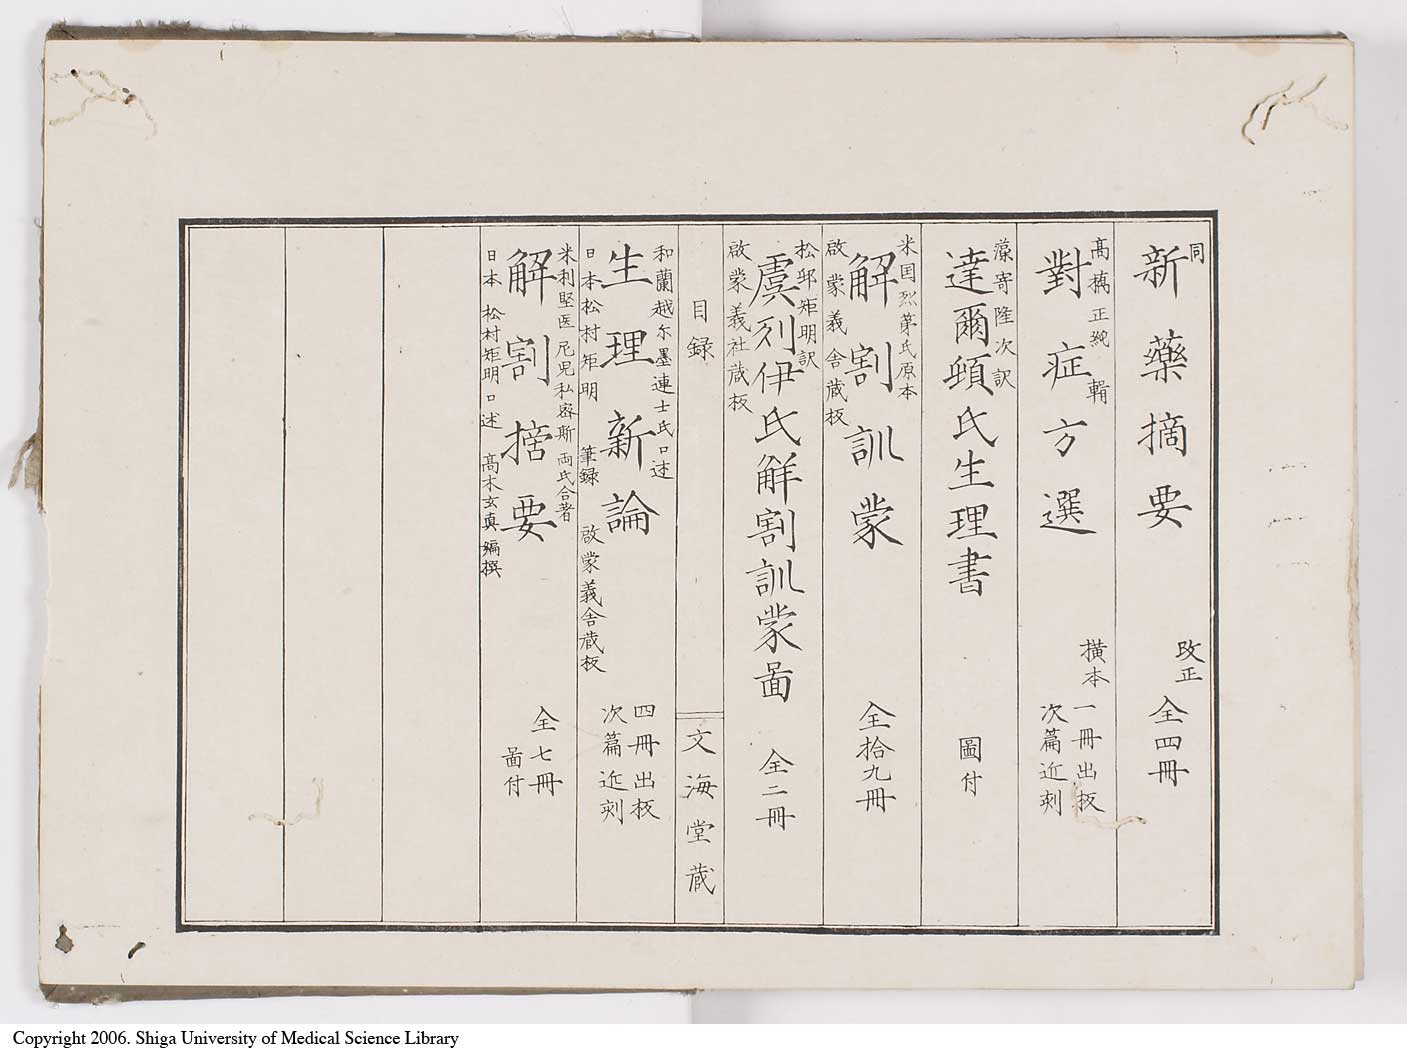 同
新藥摘要
改正
全四冊
高橋正純 輯
對症方選
横本
一冊出板
次篇近刻
藻寄隆次訳
達爾頓氏生理書
圖付
米国烈茅氏原本
解割訓蒙
啟蒙義舎蔵板
全拾九冊
松邨矩明訳
虞列伊氏解割訓蒙啚
啟蒙義社蔵板
全二冊
目録
文海堂蔵
和蘭越尓墨連士氏口述
生理新論
日本松村矩明 筆録 啟蒙義舎蔵板
四冊出板
次篇近刻
米利堅医 尼児私密斯 両氏合著
解割摘要
日本 松村矩明口述 高木玄真編撰
全七冊
啚付
Copyright 2006. Shiga University of Medical Science Library